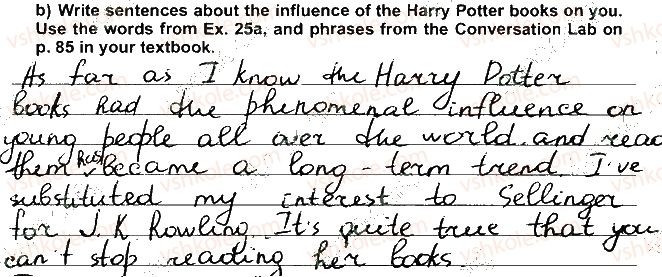 b) Write sentences about the influence of the Harry Potter books on you.
Use the words from Ex. 25a, and phrases from the Conversation Lab on
p. 85 in your textbook.
As far as I know the Harry Potter
books had the phenomenal influence on
young people all over the world. and read
them has became a long-term trend. I've
substituted my interest to Sellinger
for J.K Rowling. It's quite true that you
can't stop reading her books